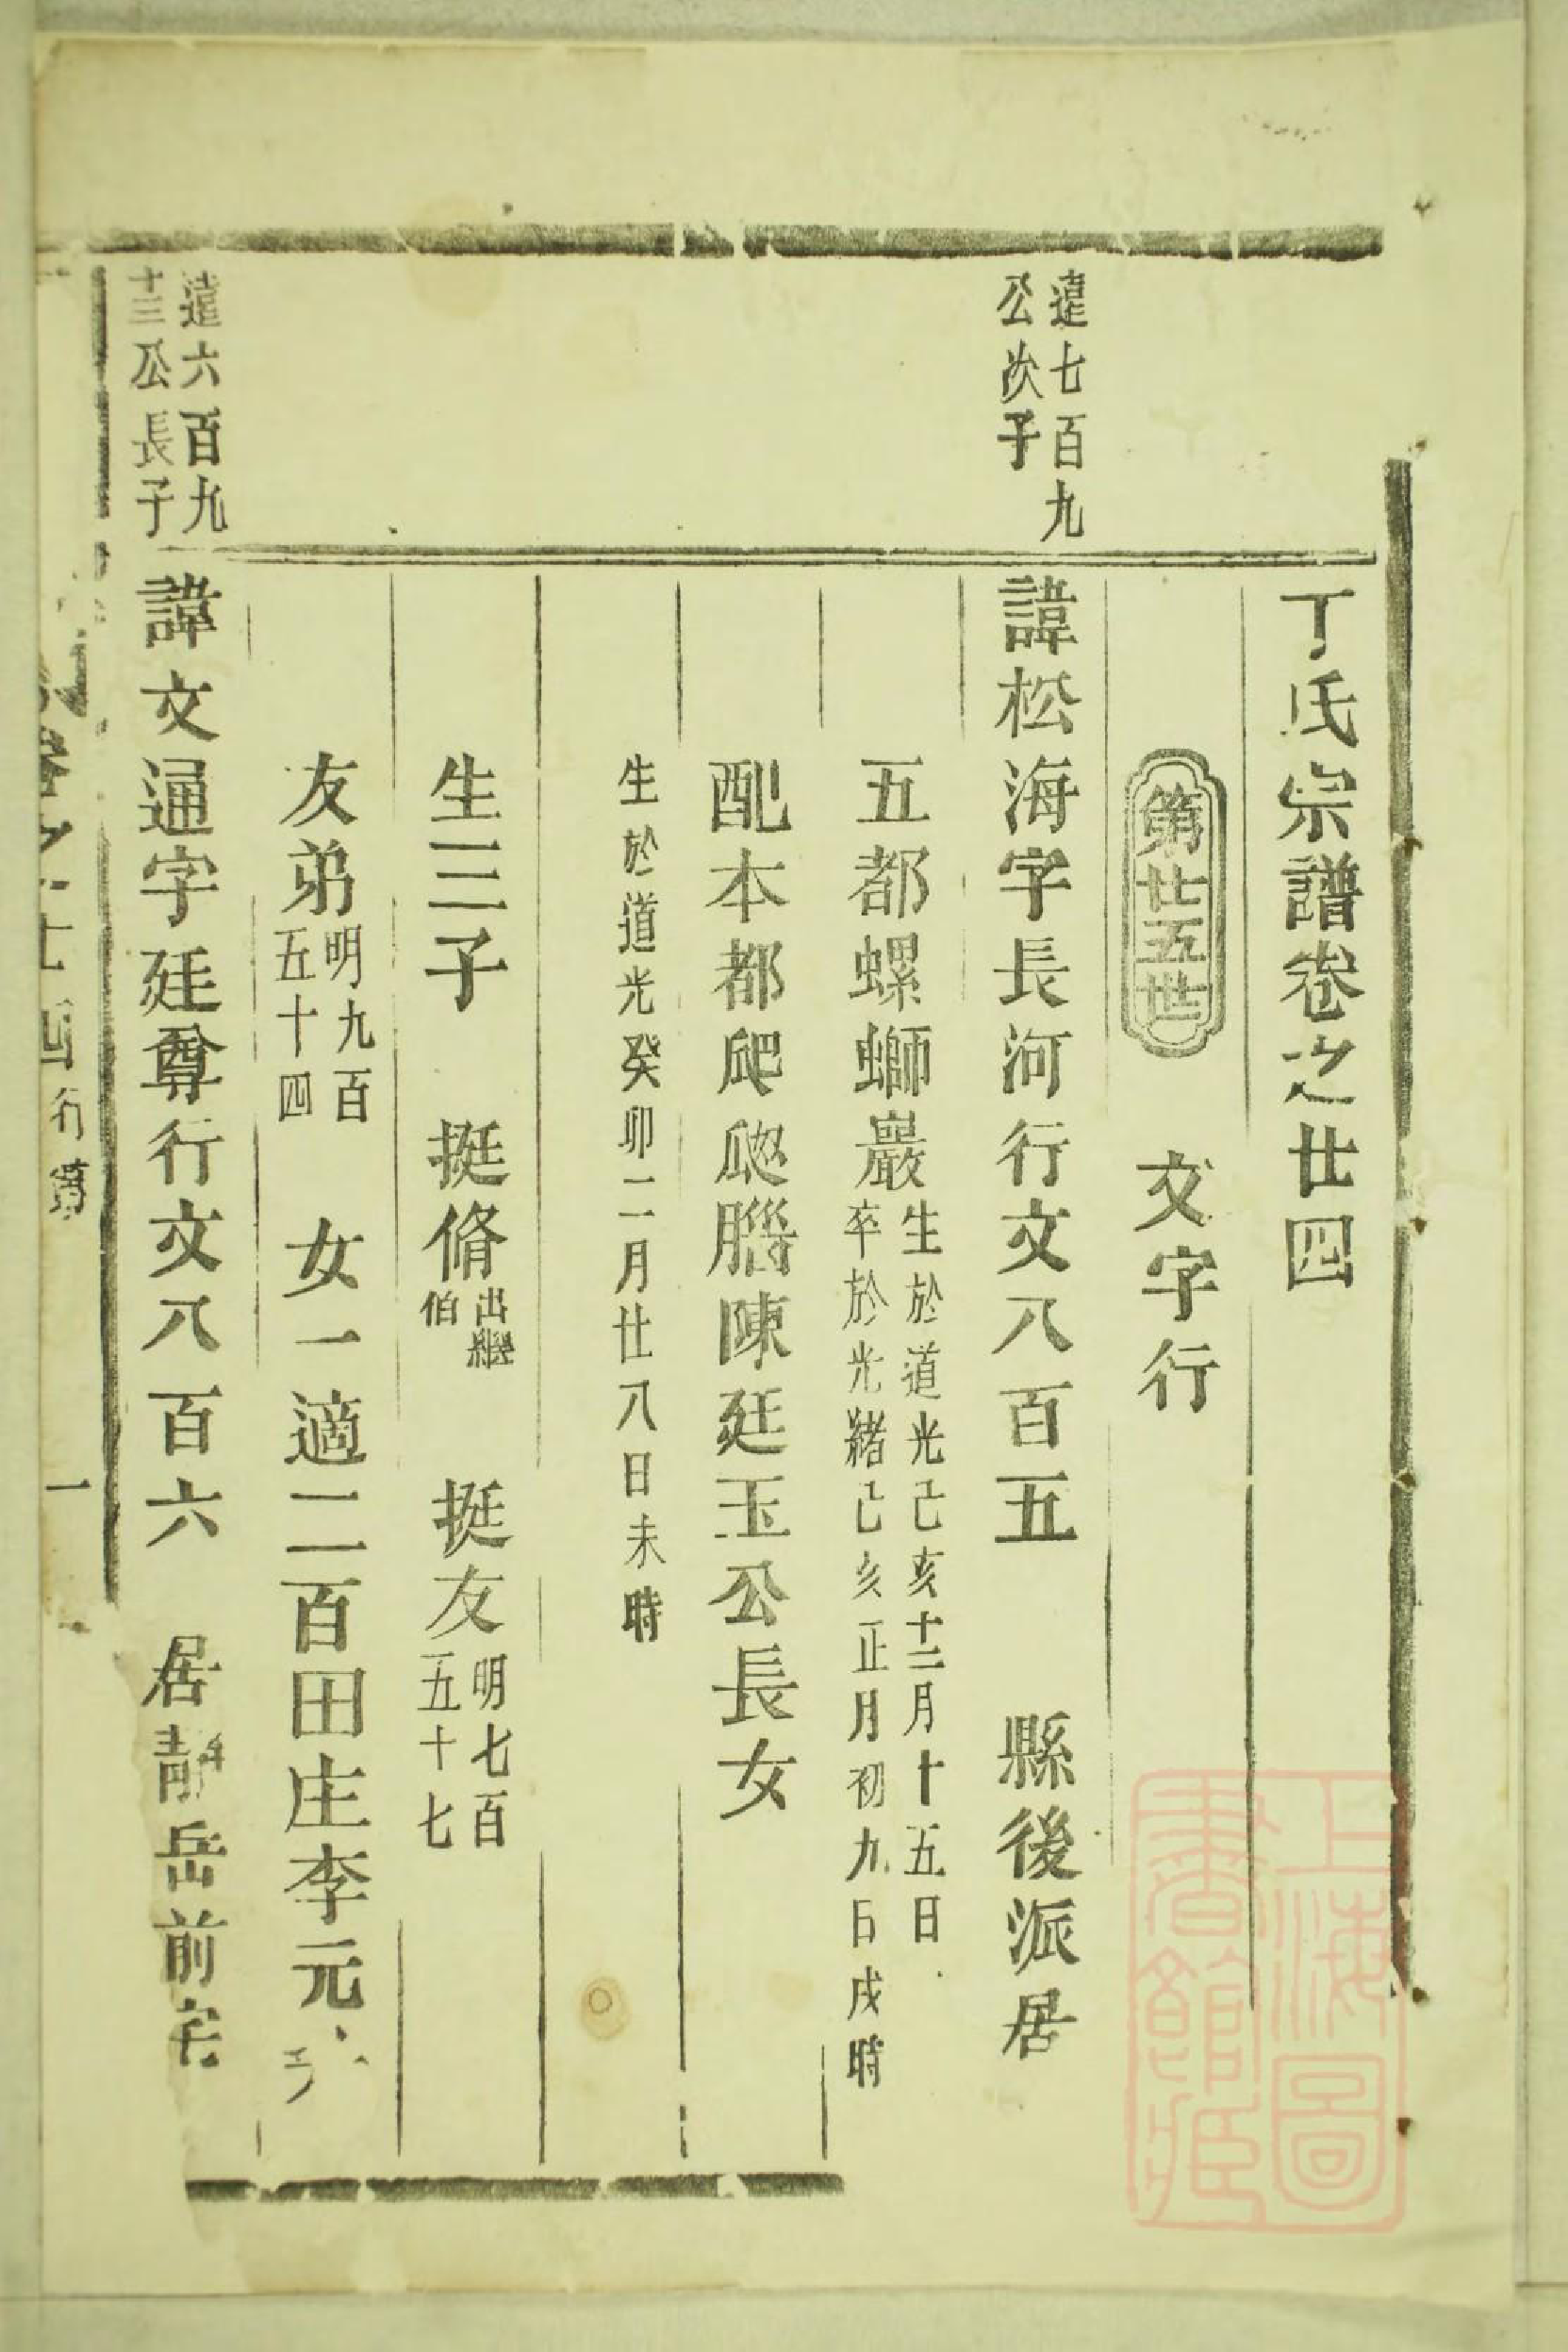 丁氏宗譜卷之廿四
第廿五世　文字行
遠七百九
公次子
諱松海字長河行文八百五　縣後派居
五都螺螄巖
生於道光己亥十二月十五日
卒於光緒己亥正月初九日戌時
配本都爬𤓰腦陳廷玉公長女
生於道光癸卯二月廿八日未時
生三子　挺脩
出繼
伯
挺友
明七百
五十七
友弟
明九百
五十四
女一適二百田庄李元
遠六百九
十三公長子
諱文通字廷尊行文八百六　居靜岳前宅
卷之廿四
行第
一
上海圖
書館藏